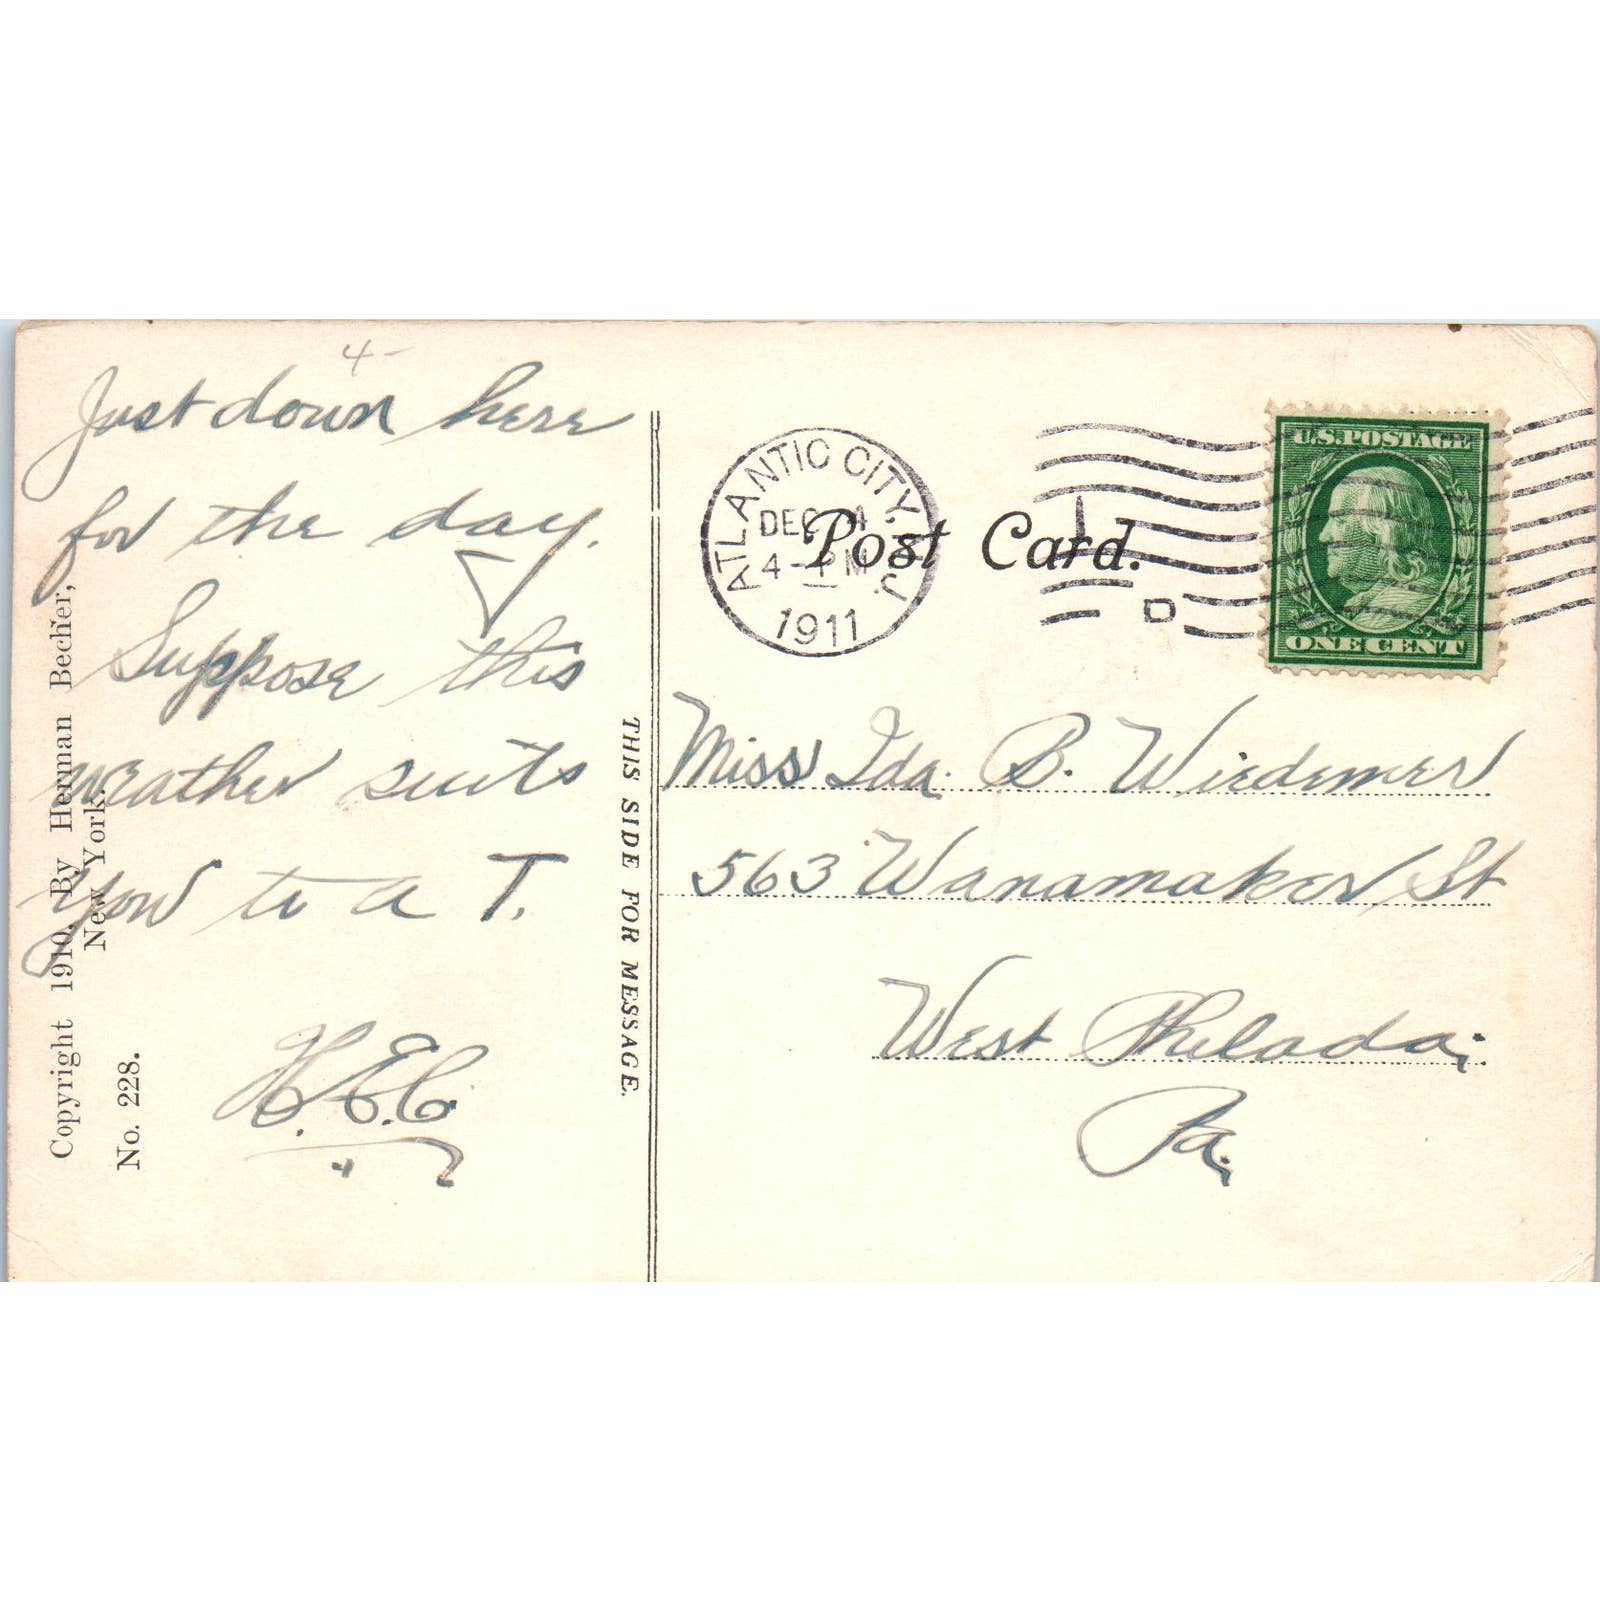 4-
Just down here
for the day.
Suppose this
weather suits
you to a T.
H.E.C.
Copyright 1910, By Herman Becher,
New York.
No. 228.
THIS SIDE FOR MESSAGE.
ATLANTIC CITY, N.J.
DEC 4
4-PM
1911
Post Card.
D
U.S. POSTAGE
ONE CENT
Miss Ida B. Wiedemer
563 Wanamaker St
West Philada,
Pa.